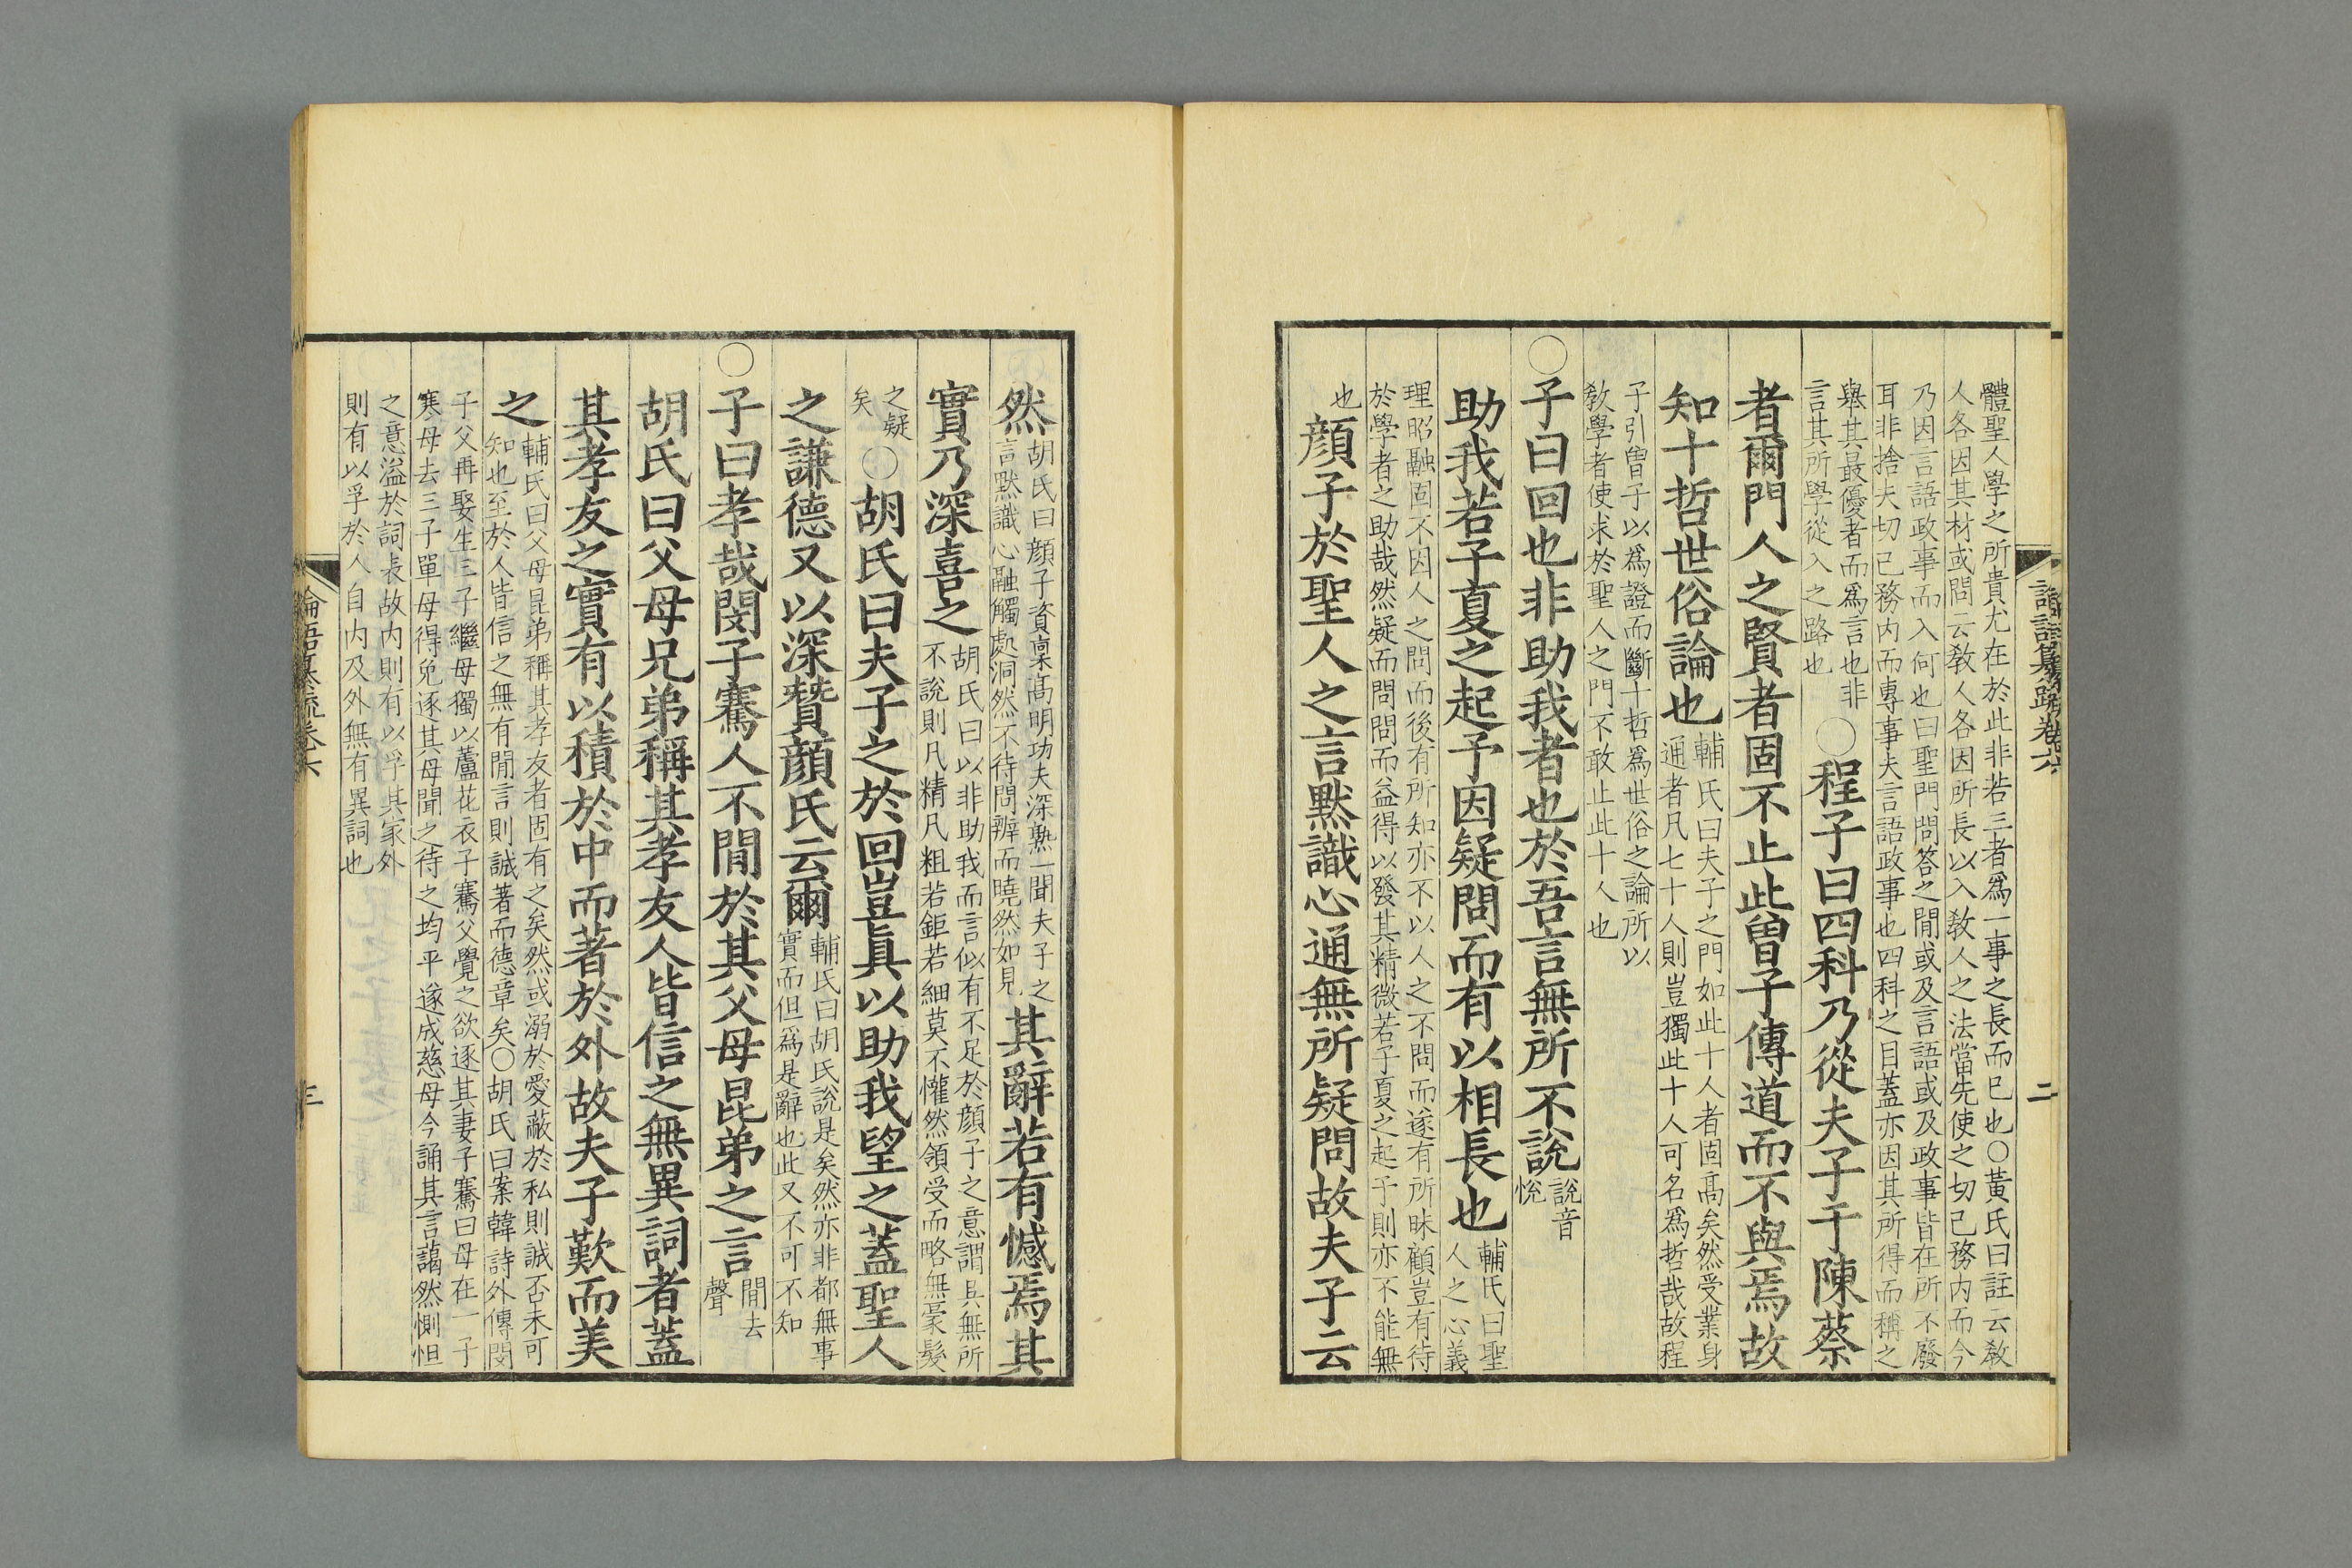 論語纂疏卷六
二
體聖人學之所貴尤在於此非若三者爲一事之長而已也○黃氏曰註云敎
人各因其材或問云敎人各因所長以入敎人之法當先使之切己務内而今
乃因言語政事而入何也曰聖門問答之閒或及言語或及政事皆在所不廢
耳非捨夫切己務内而專事夫言語政事也四科之目蓋亦因其所得而稱之
舉其最優者而爲言也非
言其所學從入之路也
○程子曰四科乃從夫子于陳蔡
者爾門人之賢者固不止此曾子傳道而不與焉故
知十哲世俗論也
輔氏曰夫子之門如此十人者固髙矣然受業身
通者凡七十人則豈獨此十人可名爲哲哉故程
子引曾子以爲證而斷十哲爲世俗之論所以
敎學者使求於聖人之門不敢止此十人也
○子曰回也非助我者也於吾言無所不說
說音
恱
助我若子夏之起予因疑問而有以相長也
輔氏曰聖
人之心義
理昭融固不因人之問而後有所知亦不以人之不問而遂有所昧顧豈有待
於學者之助哉然疑而問問而益得以發其精微若子夏之起予則亦不能無
也
顔子於聖人之言黙識心通無所疑問故夫子云
然
胡氏曰顔子資稟髙明功夫深熟一聞夫子之
言黙識心融觸處洞然不待問辨而曉然如見
其辭若有憾焉其
實乃深喜之
胡氏曰以非助我而言似有不足於顔子之意謂其無所
不說則凡精凡粗若鉅若細莫不懽然領受而略無豪髮
之疑
矣
○胡氏曰夫子之於回豈眞以助我望之蓋聖人
之謙德又以深贊顔氏云爾
輔氏曰胡氏說是矣然亦非都無事
實而但爲是辭也此又不可不知
○子曰孝哉閔子騫人不閒於其父母昆弟之言
閒去
聲
胡氏曰父母兄弟稱其孝友人皆信之無異詞者蓋
其孝友之實有以積於中而著於外故夫子歎而美
之
輔氏曰父母昆弟稱其孝友者固有之矣然或溺於愛蔽於私則誠否未可
知也至於人皆信之無有閒言則誠著而德章矣○胡氏曰案韓詩外傳閔
子父再娶生三子繼母獨以蘆花衣子騫父覺之欲逐其妻子騫曰母在一子
寒母去三子單母得免逐其母聞之待之均平遂成慈母今誦其言藹然惻怛
之意溢於詞表故内則有以孚其家外
則有以孚於人自内及外無有異詞也
論語纂疏卷六
三